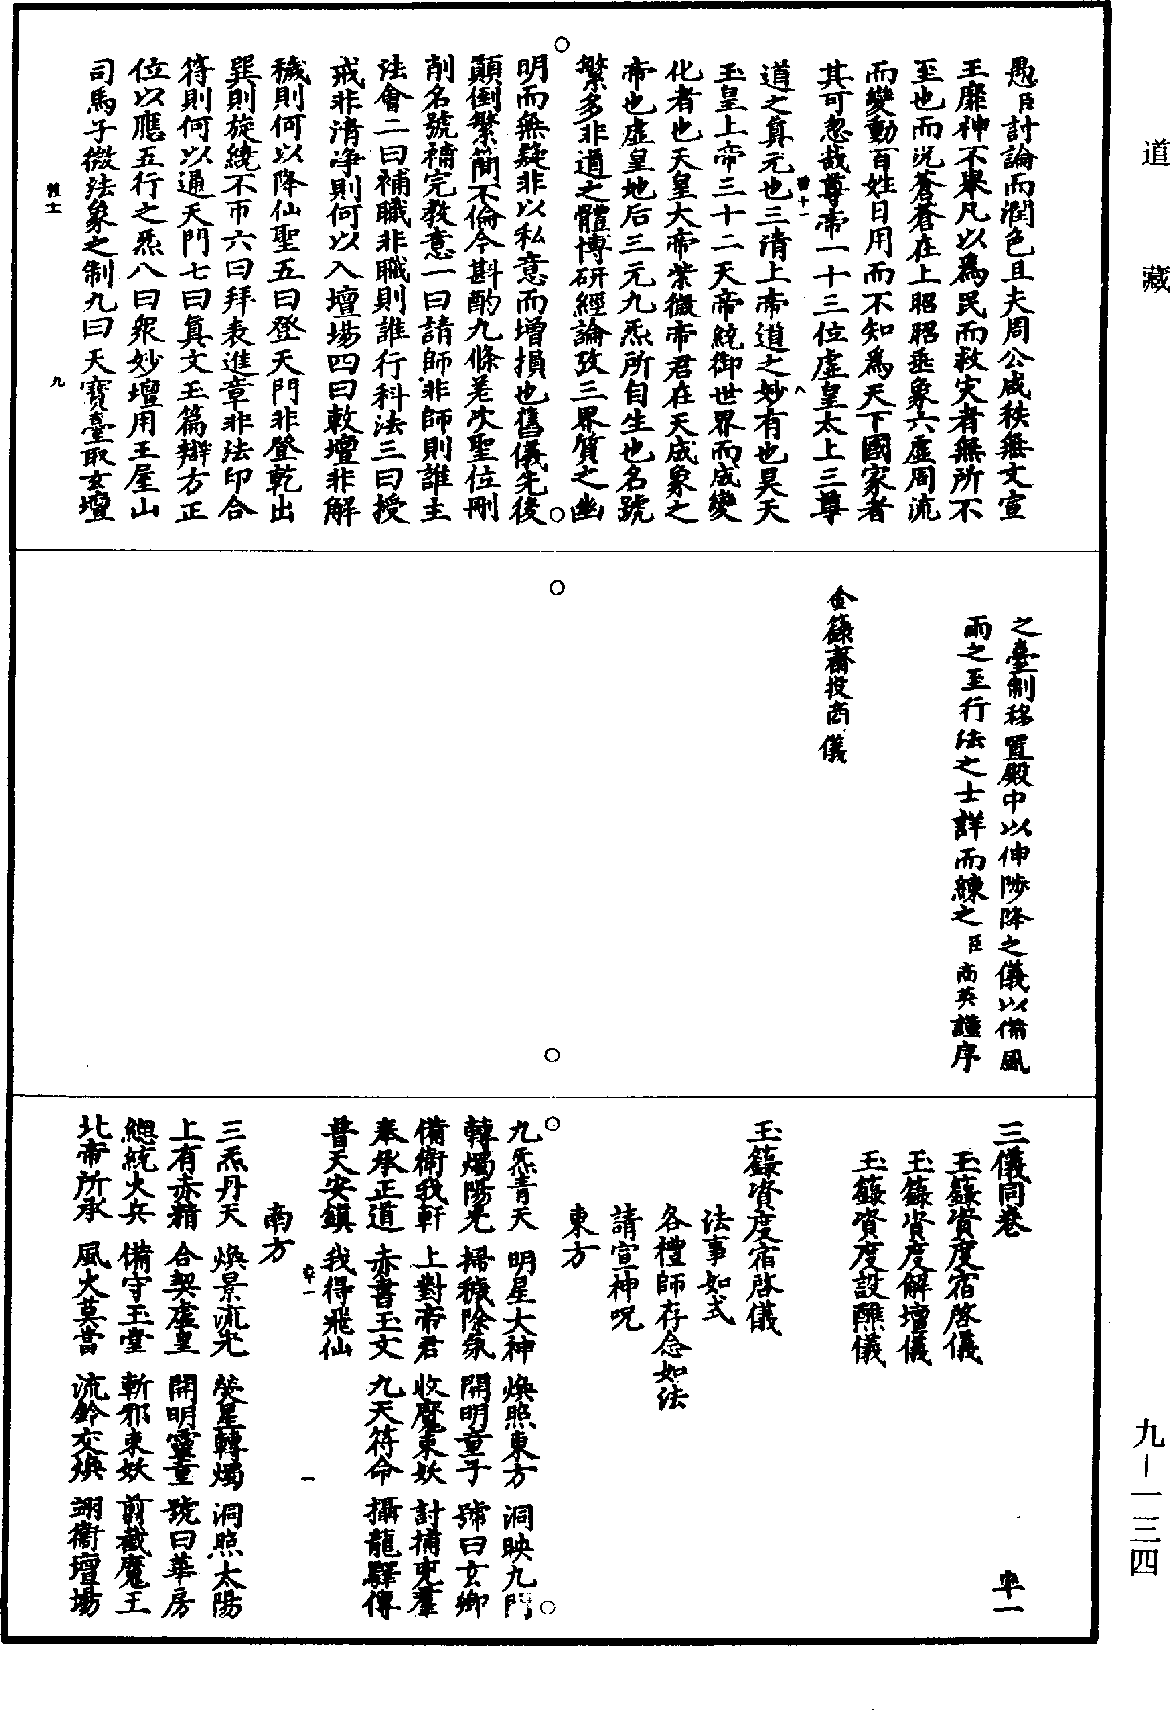 道藏
愚臣討論而潤色且夫周公咸秩無文宣
王靡神不舉凡以為民而救灾者無所不
至也而況蒼蒼在上昭昭垂象六虛周流
而變動百姓日用而不知為天下國家者
其可忽哉尊帝一十三位虛皇太上三尊
道之真元也三清上帝道之妙有也昊天
玉皇上帝三十二天帝統御世界而成變
化者也天皇大帝紫微帝君在天成象之
帝也虛皇地后三元九炁所自生也名號
繁多非道之體博研經論攷三界質之幽
明而無疑非以私意而增損也舊儀先後
顛倒繁簡不倫今斟酌九條差次聖位刪
削名號補完教意一曰請師非師則誰主
法會二曰補職非職則誰行科法三曰授
戒非清淨則何以入壇場四曰敕壇非解
穢則何以降仙聖五曰登天門非登乾出
巽則旋繞不帀六曰拜表進章非法印合
符則何以通天門七曰真文玉篇辯方正
位以應五行之炁八曰衆妙壇用王屋山
司馬子微法象之制九曰天寶臺取玄壇
九
之臺制移置殿中以伸陟降之儀以備風
雨之至行法之士詳而練之臣商英謹序
金籙齋投簡儀
三儀同卷
玉籙資度宿啓儀
玉籙資度解壇儀
玉籙資度設醮儀
玉籙資度宿啓儀
法事如式
各禮師存念如法
請宣神呪
東方
九炁青天 明星大神 煥照東方 洞映九門
轉燭陽光 掃穢除氛 開明童子 號曰玄卿
備衛我軒 上對帝君 收魔束妖 討捕兇羣
奉承正道 赤書玉文 九天符命 攝龍驛傳
普天安鎮 我得飛仙
一
南方
三炁丹天 煥景流光 熒星轉燭 洞照太陽
上有赤精 合契虛皇 開明靈童 號曰華房
總統火兵 備守玉堂 斬邪束妖 翦截魔王
北帝所承 風火莫當 流鈴交煥 翊衛壇場
九-一三四